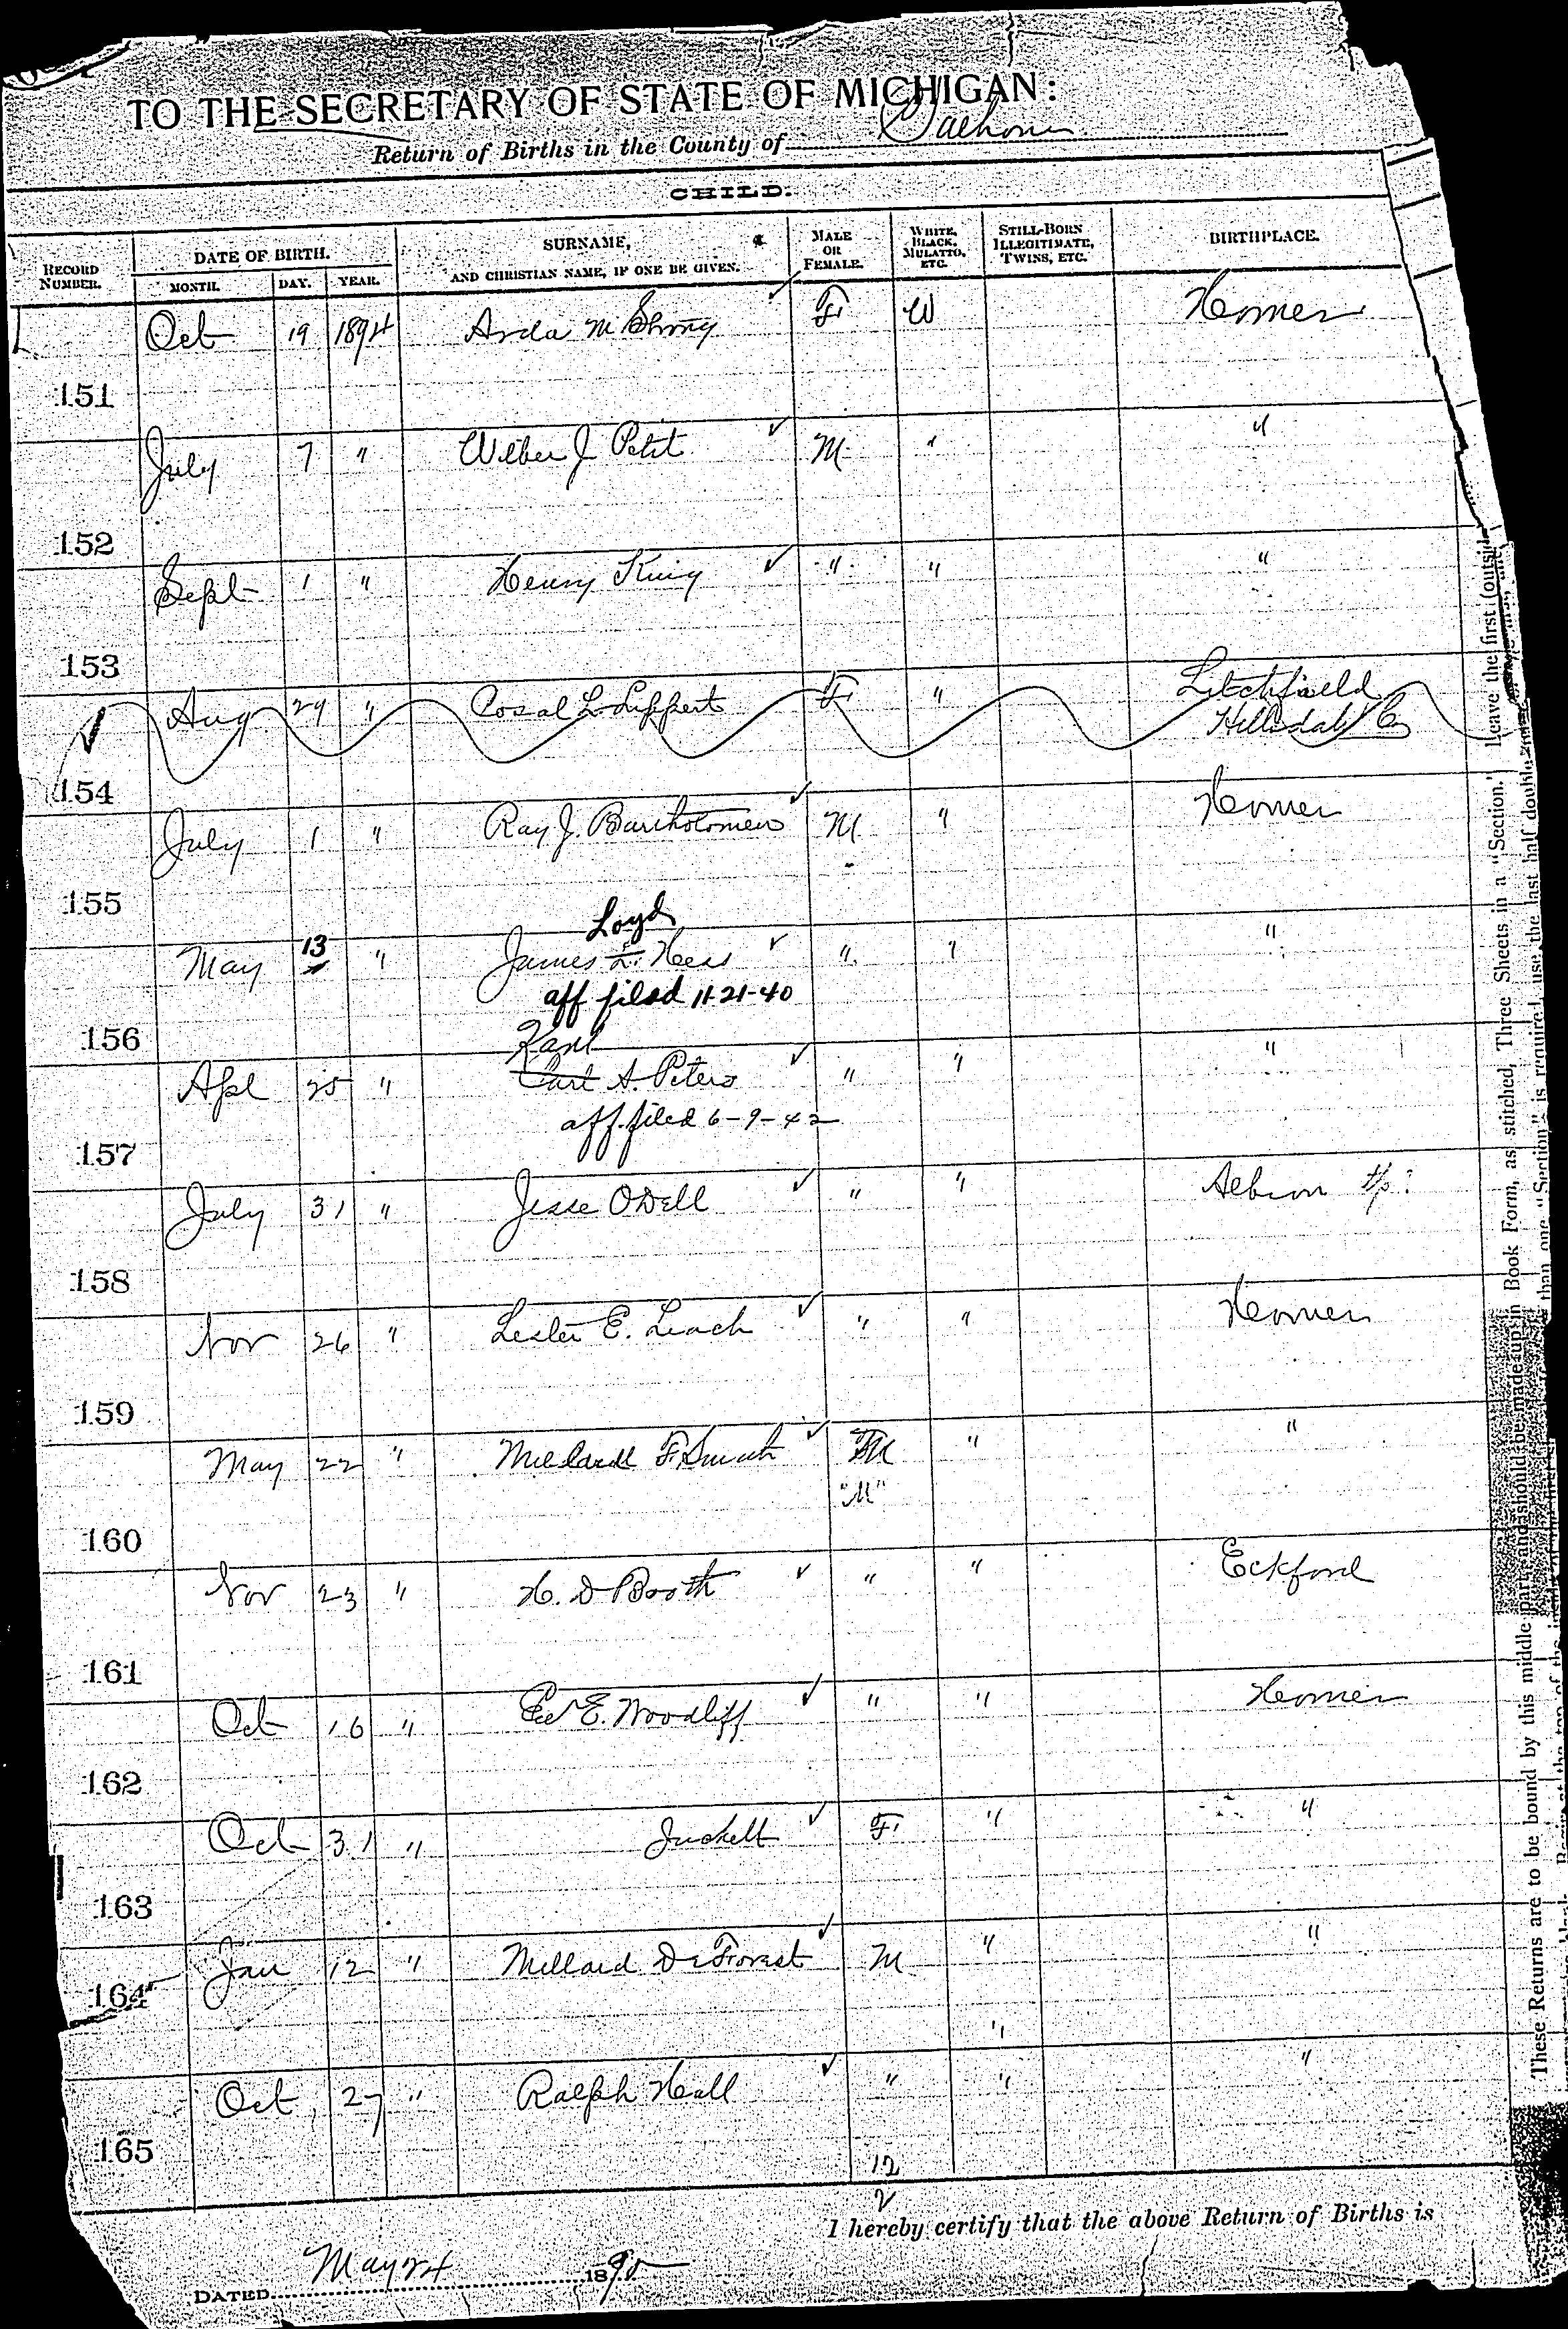 TO THE SECRETARY OF STATE OF MICHIGAN:
Return of Births in the County of Calhoun
CHILD.
RECORD NUMBER. DATE OF BIRTH. MONTH. DAY. YEAR. SURNAME, AND CHRISTIAN NAME, IF ONE BE GIVEN. MALE OR FEMALE. WHITE, BLACK, MULATTO, ETC. STILL-BORN ILLEGITIMATE, TWINS, ETC. BIRTHPLACE.
Oct 19 1894 M F W Homer
151
July 7 " Wilber J Petit M " "
152
Sept 1 " Henry King " " "
153
Aug 29 " L Lippert F " Litchfield
Hillsdale Co
154
July 1 " Ray J. Bartholomew M " Homer
155
Loyd
May 13 " James L. Hess " " "
aff filed 11-21-40
156
Karl
Apl 25 " Carl A. Peters " " "
aff. filed 6-9-42
157
July 31 " Jesse ODell " " Albion
158
Nov 26 " Lester E. Leach " " Homer
159
May 22 " F. Smith M " "
"M"
160
Nov 23 " H. D Booth " " Eckford
161
Oct 16 " Ed E. Woodliff " " Homer
162
Oct 31 " Juckett F " "
163
Jan 12 " Millard DeForest M " "
164
"
Oct 27 " Ralph Hall " " "
165
12
2
I hereby certify that the above Return of Births is
DATED May 24 1895
Leave the first (outside
These Returns are to be bound by this middle part and should be made up in Book Form, as stitched, Three Sheets in a "Section."
than one "Section" is required, use the last half double